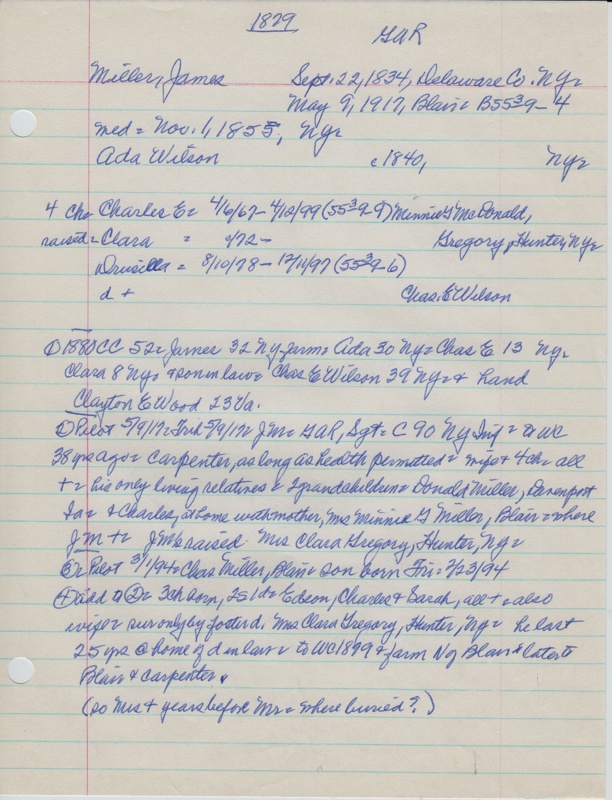 1879
GAR
Miller, James Sept. 22, 1834, Delaware Co. Ny=
May 9, 1917, Blair = B5539-4
med = Nov. 1, 1855, Ny=
Ada Wilson c1840, Ny=
4 Ch= Charles E= 4/6/67- 4/12/99 (5539-9) Minnie G McDonald,
raised = Clara = c/72 - Gregory, Hunter, Ny=
Drusilla = 8/10/78- 12/11/97 (5539-6)
d + Chas. E Wilson
① 1880 CC 52= James 32 Ny farm= Ada 30 Ny= Chas E 13 Ny=
Clara 8 Ny= & son in law= Chas E Wilson 39 Ny= & hand
Clayton E Wood 23 Va.
② Pilot 5/9/17= Fri 5/9/17= JM= GAR, Sgt= C 90 Ny Inf = to WC
38 yrs ago = Carpenter, as long as health permitted = wife & 4 ch= all
+ = his only living relatives = 2 grandchildren= Donald Miller, Davenport
Ia= & Charles, at home with mother, Mrs Minnie G Miller, Blair = where
JM += JM raised Mrs Clara Gregory, Hunter, Ny=
③ Pilot 3/1/94= Chas Miller, Blair= son born Fri= 2/23/94
④ add to ②= 3 ch born, 2s 1d= Edson, Charles & Sarah, all + = also
wife= surv only by foster d, Mrs Clara Gregory, Hunter, Ny= he last
25 yrs @ home of d in law = to WC 1879 & farm N of Blair & later to
Blair & carpenter.
(so Mrs + years before Mr = where buried?)